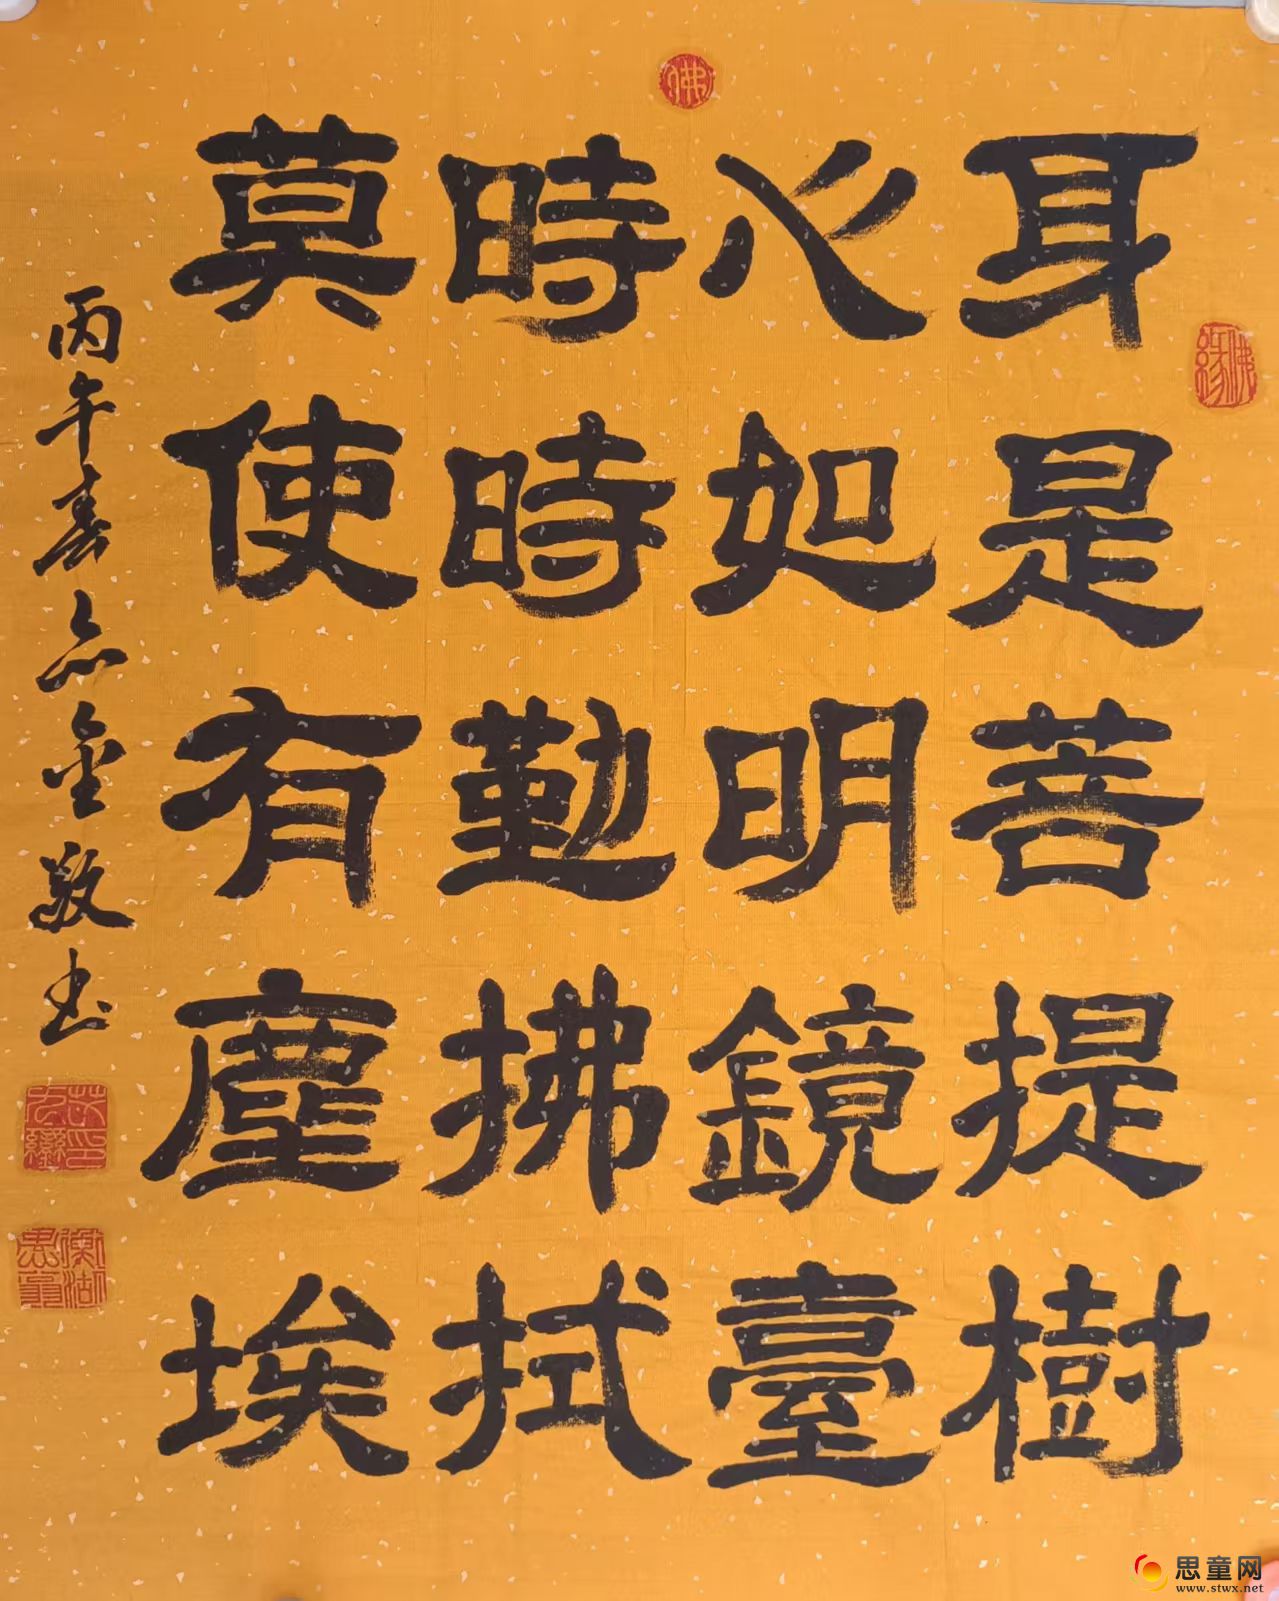 身是菩提樹
心如明鏡臺
時時勤拂拭
莫使有塵埃
丙午春 金敬书
佛
佛缘
思童网
www.stwx.net